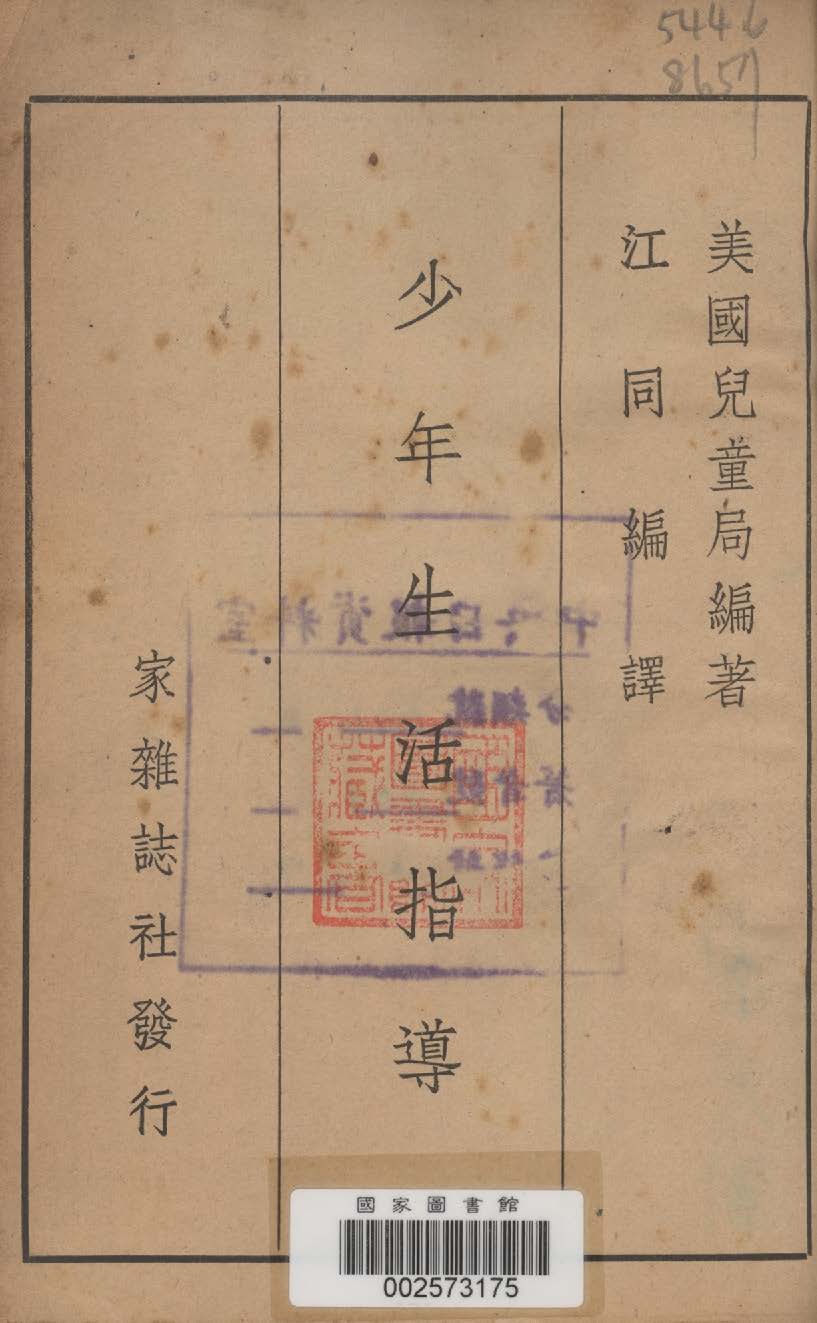 5446
8657
美國兒童局編著
江同編譯
少年生活指導
家雜誌社發行
國家圖書館
002573175